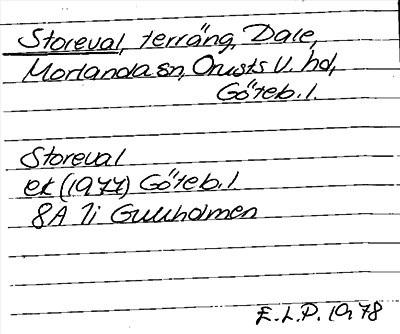 Storeval, terräng, Dale,
Morlanda sn, Orusts V. hd,
Göteb. l.
Storeval
ek (1977) Göteb. l
8A 7i Gullholmen
E.L.P. 1978